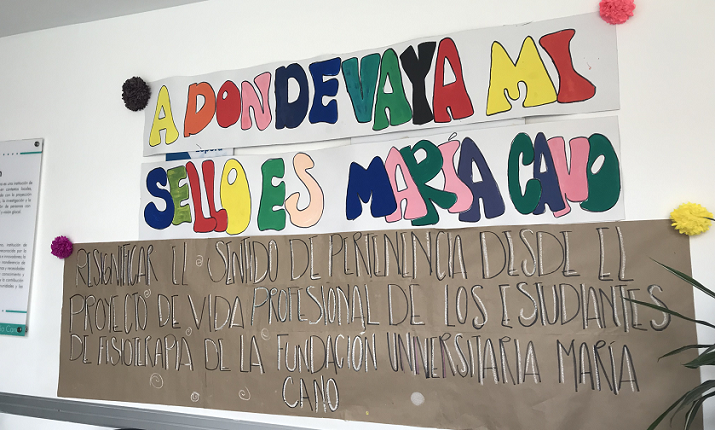 A DONDE VAYA MI
SELLO ES MARÍA CANO
RESIGNIFICAR EL SENTIDO DE PERTENENCIA DESDE EL
PROYECTO DE VIDA PROFESIONAL DE LOS ESTUDIANTES
DE FISIOTERAPIA DE LA FUNDACIÓN UNIVERSITARIA MARÍA
CANO